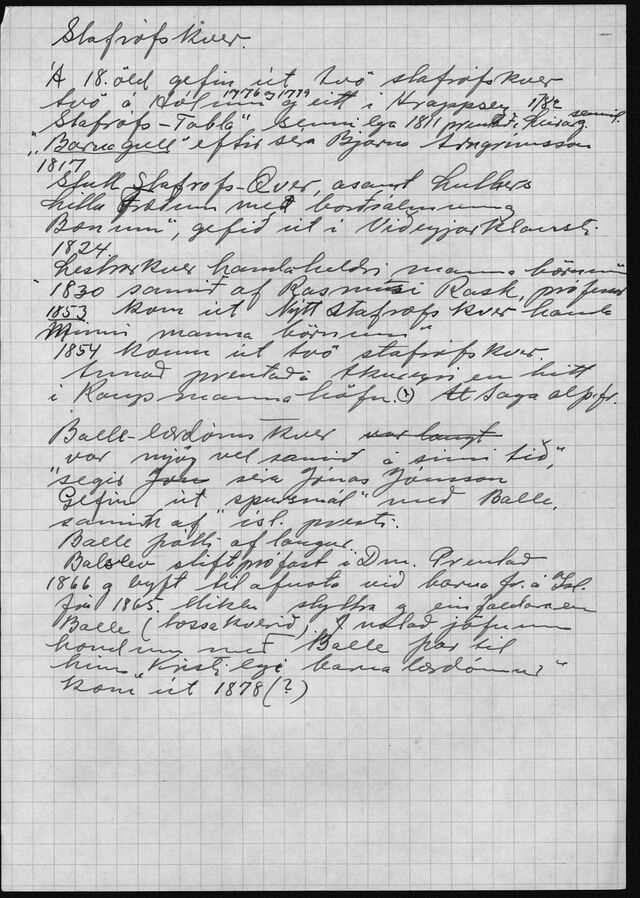 Stafrófskver.
Á 18. öld gefin út tvö stafrófskver
tvö á Hólum 1776 og 1779 og eitt í Hrappsey 1782
Stafrófs-Tabla" sennilega 1811 prentað í Leirárg. sennil.
"Barnagull" eftir séra Bjarna Arngrímsson
1817
Stutt Stafrófs-Qver, ásamt Luthers
litlu Fræðum með borðsálmum og
Bænum", gefið út í Viðeyjarklaustri
1824
Lestrarkver handa heldri manna börnum
1830 samið af Rasmusi Rask, prófessor
1853 kom út Nýtt stafrófskver handa
Minni manna börnum"
1854 komu út tvö stafrófskver.
Annað prentað á Akureyri en hitt
í Kaupmannahöfn. At Saga alþ.fr.
Balle-lærdómskver var langt
var mjög vel samið á sinni tíð",
"segir Jón séra Jónas Jónsson
Gefin út "spursmál" með Balle,
samin af ísl. presti.
Balle þótti of langur.
Balslev stiftprófast í Dm. Prentað
1866 og leyft til afnota við barnafr. á Ísl.
för 1865. Miklu styttra og einfaldara en
Balle (tossakverið) notað jöfnum
höndum með Balle þar til
hin "Kristilegi barnalærdómur"
kom út 1878 (?)